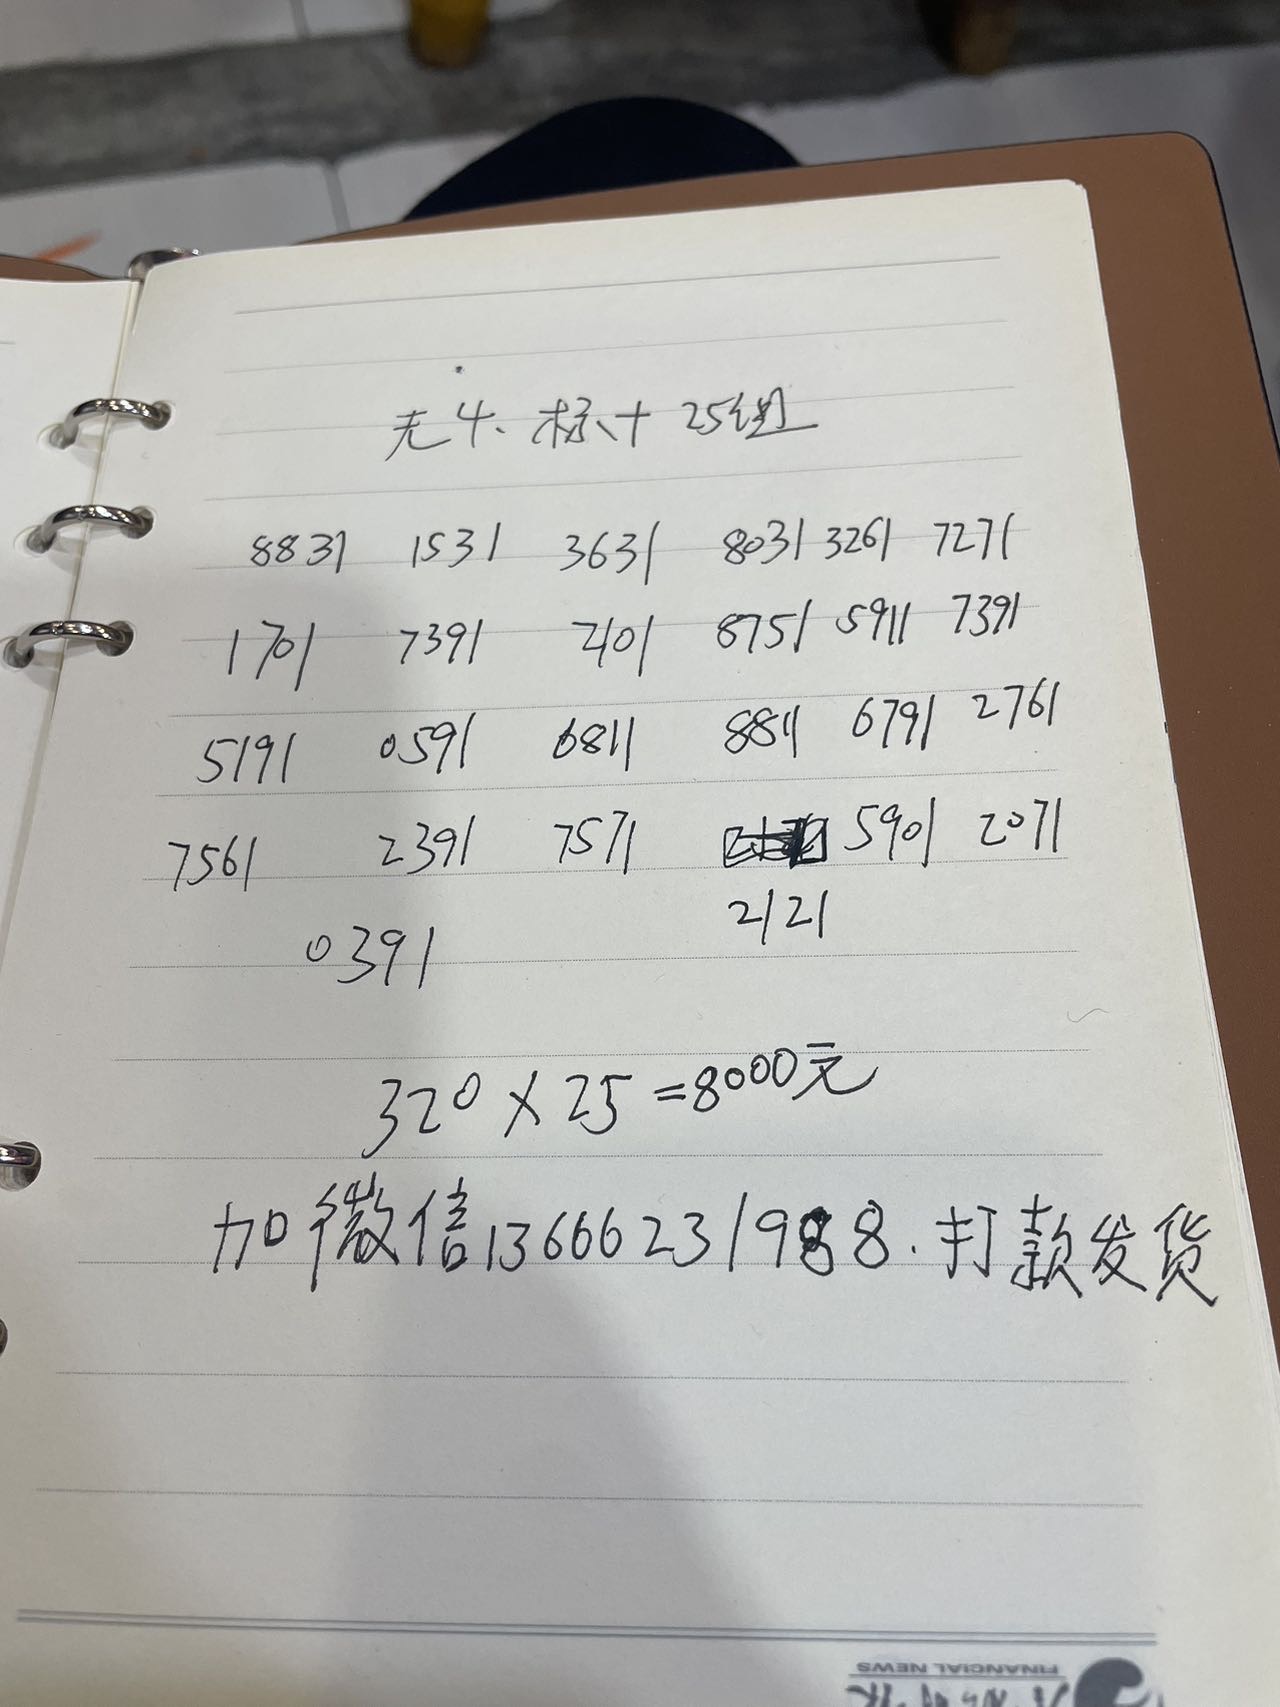 无4、标十 25组
8831 1531 3631 8031 3261 7271
1701 7391 2101 8751 5911 7391
5191 0591 6811 8811 6791 2761
7561 2391 7571 5901 2071
0391 2121
320×25=8000元
加微信13666231988.打款发货
FINANCIAL NEWS